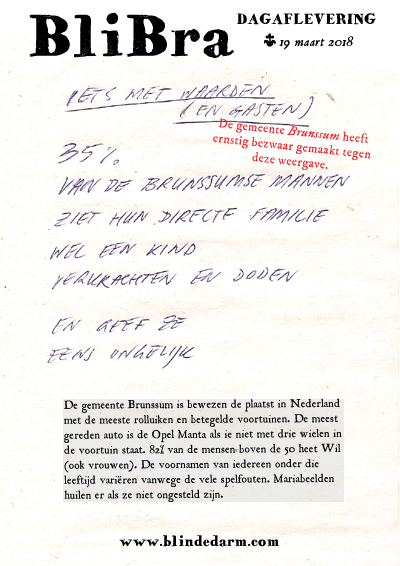 BliBra
DAGAFLEVERING
19 maart 2018
IETS MET WAARDEN
(EN GASTEN)
De gemeente Brunssum heeft
ernstig bezwaar gemaakt tegen
deze weergave.
35%
VAN DE BRUNSSUMSE MANNEN
ZIET HUN DIRECTE FAMILIE
WEL EEN KIND
VERKRACHTEN EN DODEN
EN GEEF ZE
EENS ONGELIJK
De gemeente Brunssum is bewezen de plaatst in Nederland
met de meeste rolluiken en betegelde voortuinen. De meest
gereden auto is de Opel Manta als ie niet met drie wielen in
de voortuin staat. 82% van de mensen boven de 50 heet Wil
(ook vrouwen). De voornamen van iedereen onder die
leeftijd variëren vanwege de vele spelfouten. Mariabeelden
huilen er als ze niet ongesteld zijn.
www.blindedarm.com